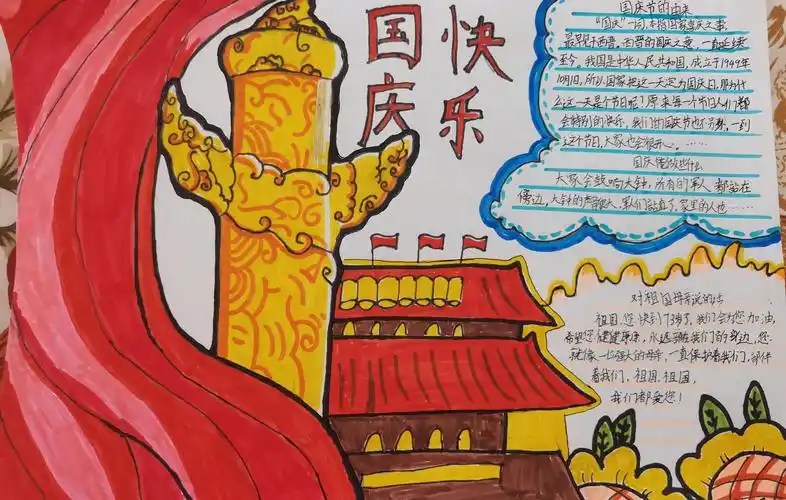 国庆
快乐
国庆节的由来
"国庆"一词,本指国家喜庆之事,
最早见于西晋。西晋的国庆之意,一直延续
至今。我国是中华人民共和国,成立于1949年
10月1日,所以国家把这一天定为国庆日,那为什
么这一天是个节日呢?原来每一个节日人们都
会特别的快乐,我们的国庆节也不另外,一到
这个节日,大家也会很开心。……
国庆
大家会敲响大钟,所有的军人都站在
傍边,大钟的声音很大,军人们站直了,家里的人也……
对祖国母亲说的话
祖国,您快到73岁了,我们会为您加油,
希望您健健康康,永远在我们的身边,您
就像一位强大的母亲,一直保护着我们,陪伴
着我们,祖国,祖国,
我们都爱您!